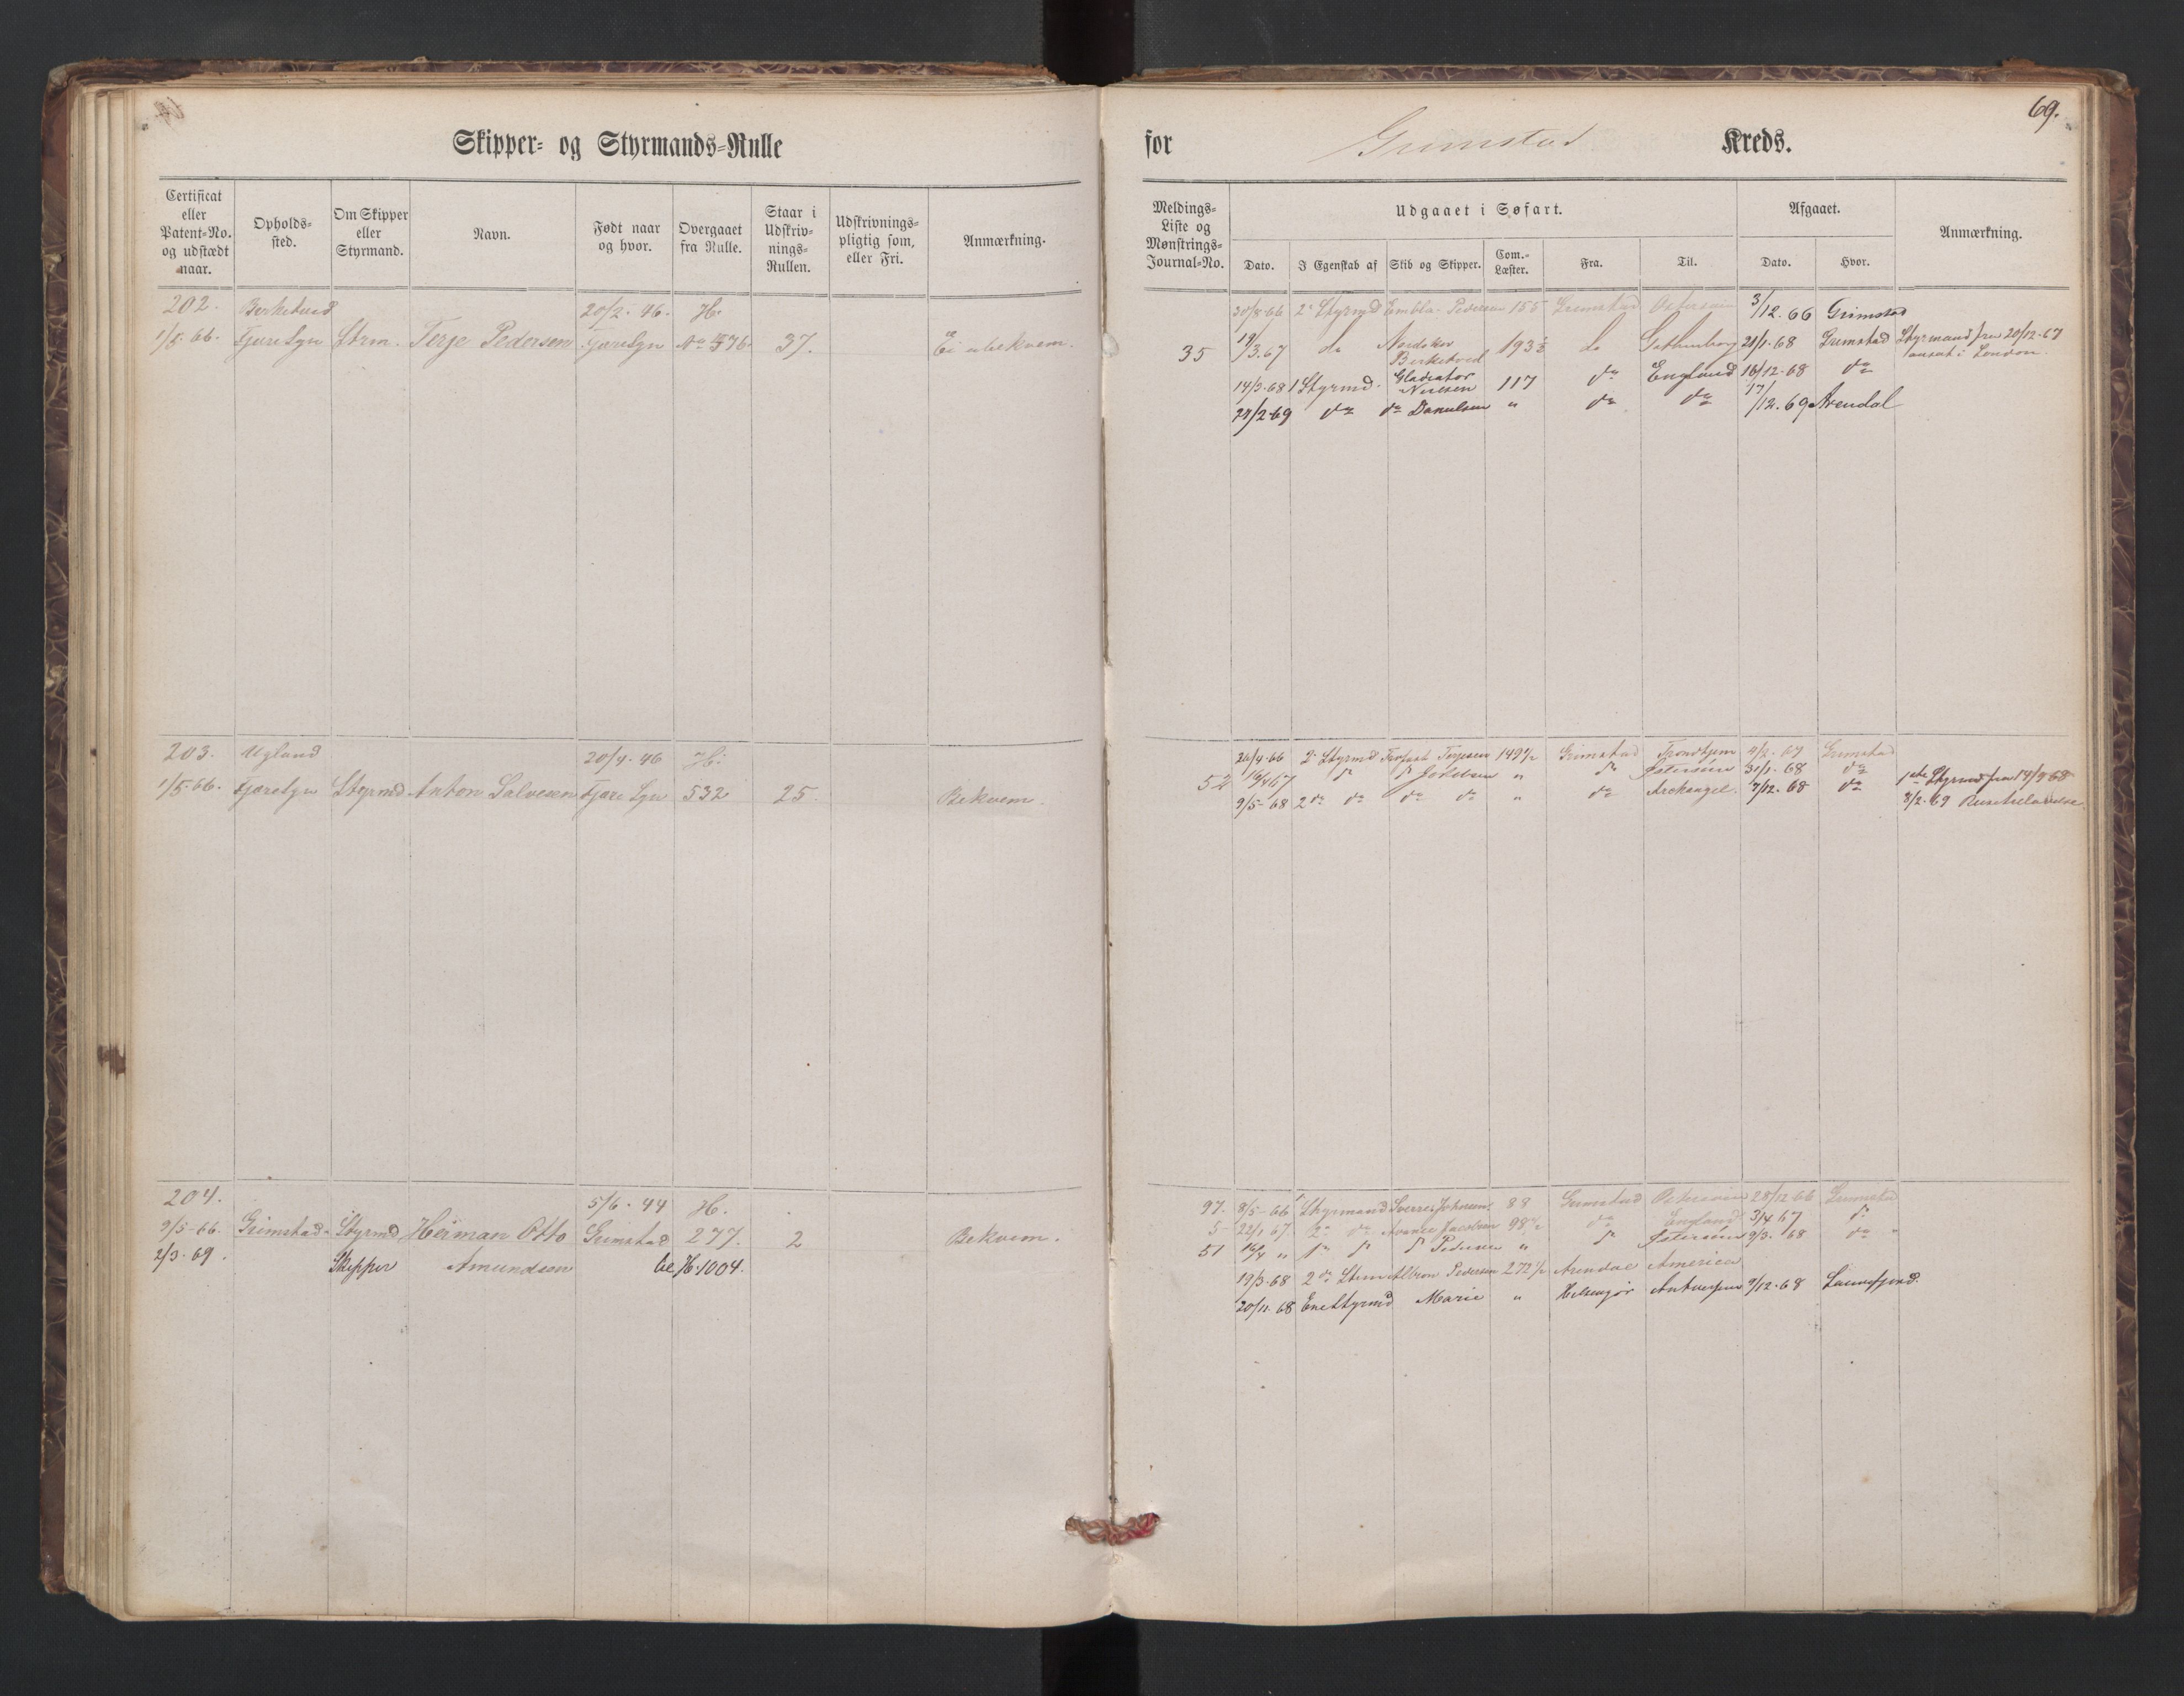 69.
Skipper- og Styrmands-Rulle for Grimstad Kreds.
Certificat eller Patent-No. og udstædt naar.
Opholds-sted.
Om Skipper eller Styrmand.
Navn.
Født naar og hvor.
Overgaaet fra Rulle.
Staar i Udskriv-nings-Rullen.
Udskrivnings-pligtig som, eller Fri.
Anmærkning.
Meldings-Liste og Mønstrings-Journal-No.
Udgaaet i Søfart.
Dato.
I Egenskab af
Skib og Skipper.
Com.-Læster.
Fra.
Til.
Afgaaet.
Dato.
Hvor.
Anmærkning.
202. 20/2. 46. H.
1/5. 66. Fjære Sgn Strm. Terje Pedersen Fjære Sgn No 576. 37. Ei ubekvem.
30/8. 66 2. Styrmd Embla Pedersen 155 Grimstad 3/12. 66 Grimstad
35 19/3. 67 do 193½ do Gothenborg 21/1. 68 Grimstad Styrmand fra 20/12. 67
ansat i London.
14/3. 68 1 Styrmd. Gladiator Nielsen 117 do England 16/12. 68 do
24/2. 69 do do Danielsen " do do 17/12. 69 Arendal
203. Ugland 20/4. 46 H.
1/5. 66. Fjære Sgn Styrmd Anton Salvesen Fjære Sgn 532 25. Bekvem.
24/4. 66 2. Styrmd Terjesen 149½ Grimstad Trondhjem 4/2. 67 Grimstad
52 16/4 67 do do " do Østersøen 31/1. 68 do
9/5. 68 2 do do do do " do Archangel. 7/12. 68 do 1ste Styrmd fra 14/9 68
8/2. 69
204. 5/6. 44 H.
9/5. 66. Grimstad Styrmd Herman Otto Grimstad 277. 2 Bekvem.
2/3. 69. Skipper Amundsen 1004.
97. 8/5. 66 Styrmand 88 Grimstad 28/12. 66 Grimstad
5 22/1 67. 2 do Jacobsen 98½ do England 3/4 67 do
51 16/4 " 1 do do Pedersen " do Østersøen 9/3. 68 do "
19/3. 68 2 do Strm Albion Pedersen 272½ Arendal America
20/11. 68 Enestyrmd Marie " Helsingør Antwerpen 9/12. 68